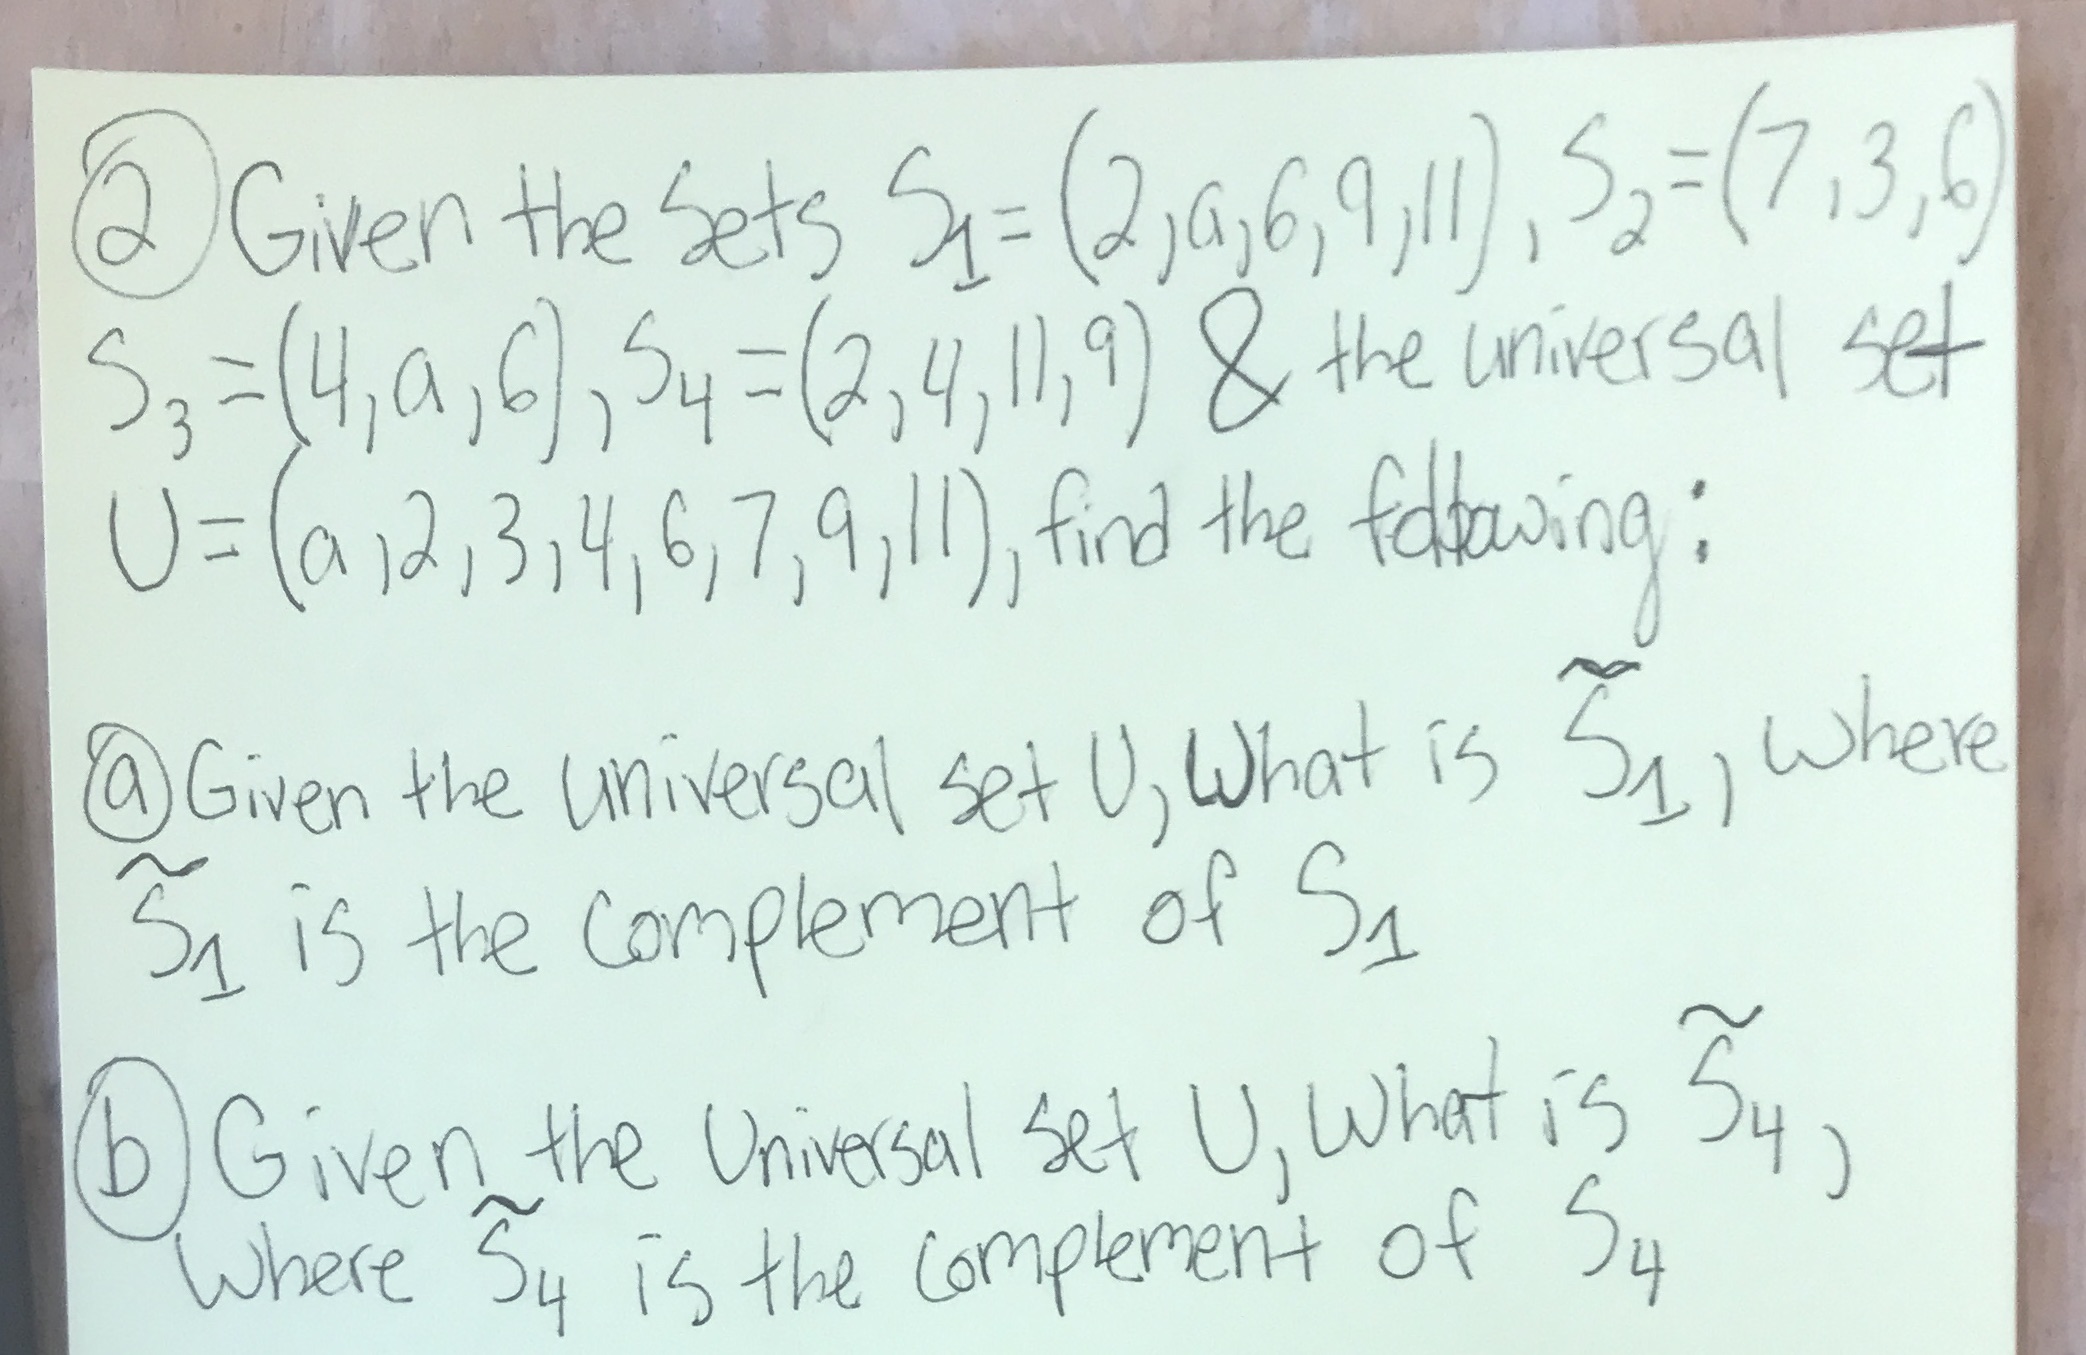 ② Given the Sets S₁=(2,a,6,9,11), S₂=(7,3,6)
S₃=(4,a,6), S₄=(2,4,11,9) & the universal set
U=(a,2,3,4,6,7,9,11), find the following:
ⓐ Given the universal set U, What is S̃₁, where
S̃₁ is the complement of S₁
ⓑ Given the Universal set U, What is S̃₄,
Where S̃₄ is the complement of S₄